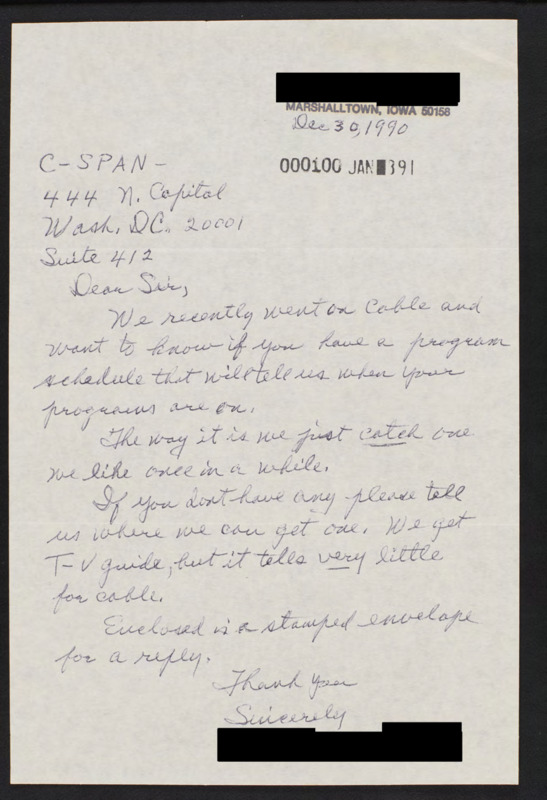 MARSHALLTOWN, IOWA 50158
Dec 30, 1990
000100 JAN 391
C-SPAN-
444 N. Capitol
Wash. D.C. 20001
Suite 412
Dear Sir,
We recently went on Cable and
want to know if you have a program
schedule that will tell us when your
programs are on.
The way it is we just catch one
we like once in a while.
If you dont have any please tell
us where we can get one. We get
T-V guide, but it tells very little
for cable.
Enclosed is a stamped envelope
for a reply.
Thank You
Sincerely